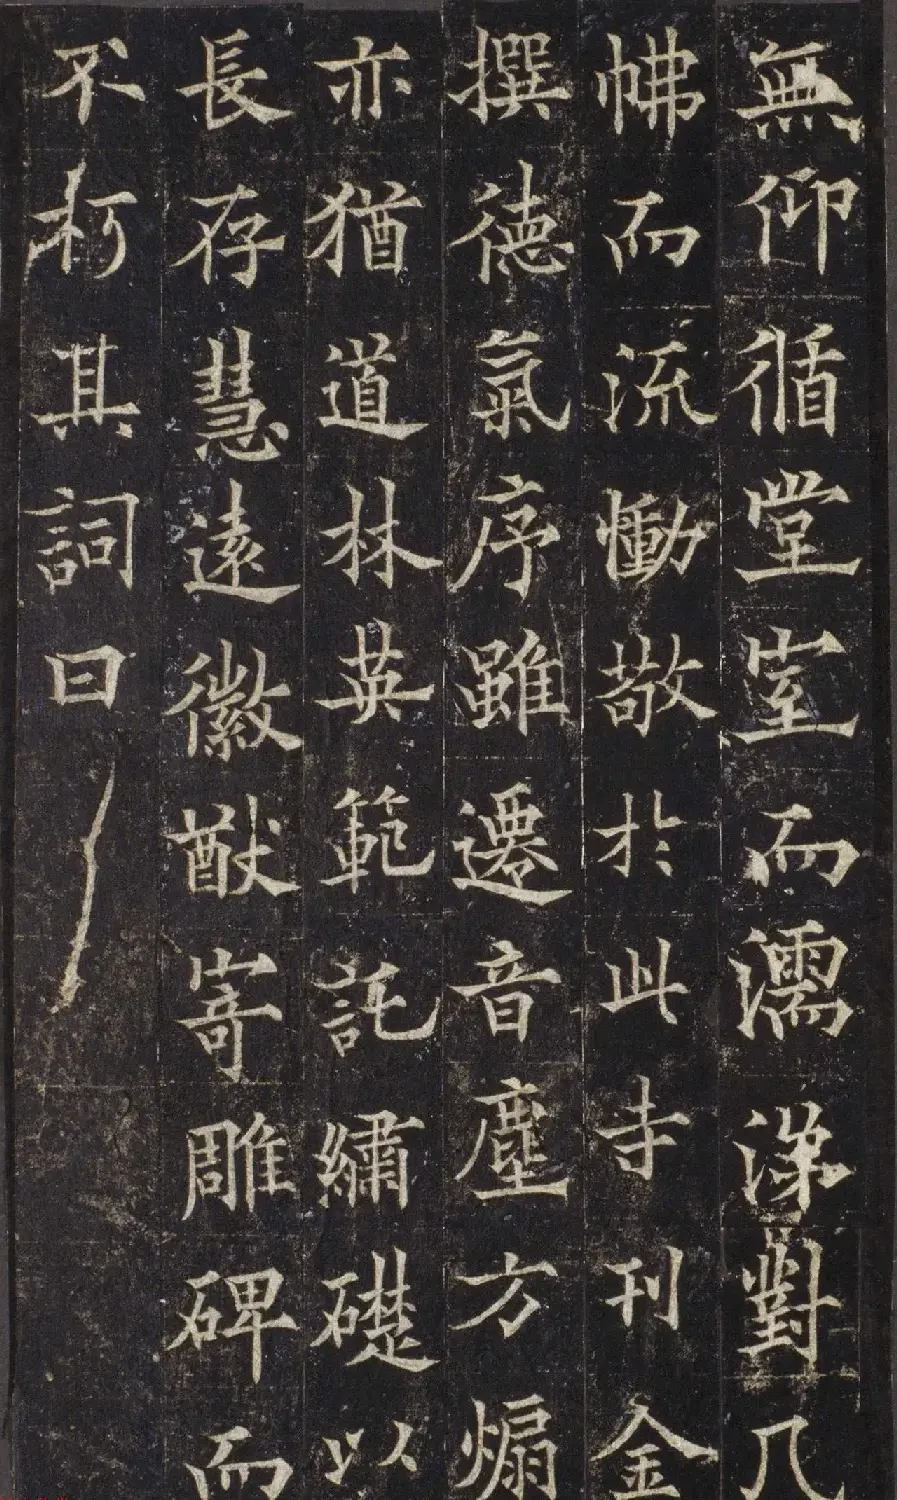 無仰循堂室而濡涕對几
怫而流慟敬於此寺刊金
撰德氣序雖遷音塵方煽
亦猶道林英範託繡礎以
長存慧遠徽猷寄雕碑而
不朽其詞曰